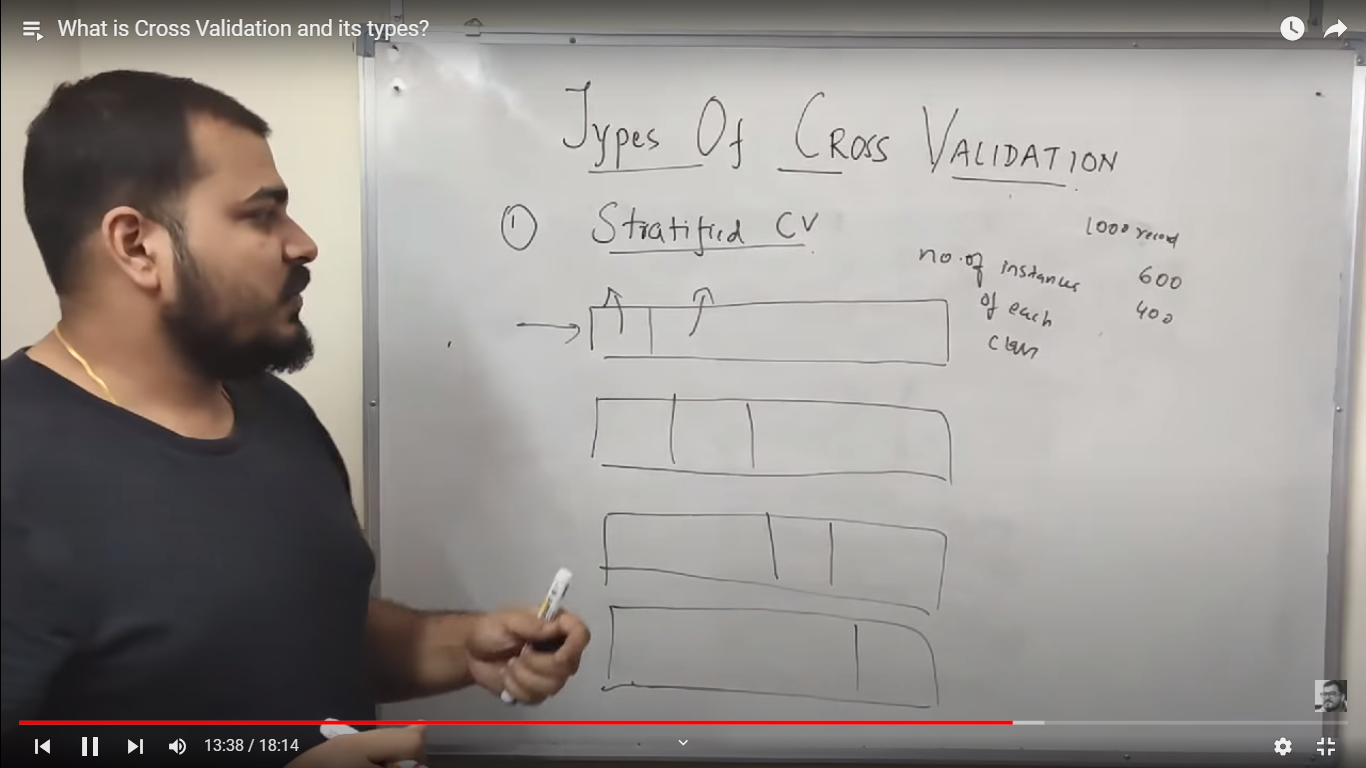 What is Cross Validation and its types?
Types Of CROSS VALIDATION
① Stratified CV
1000 record
no. of instances 600
of each 400
class
13:38 / 18:14